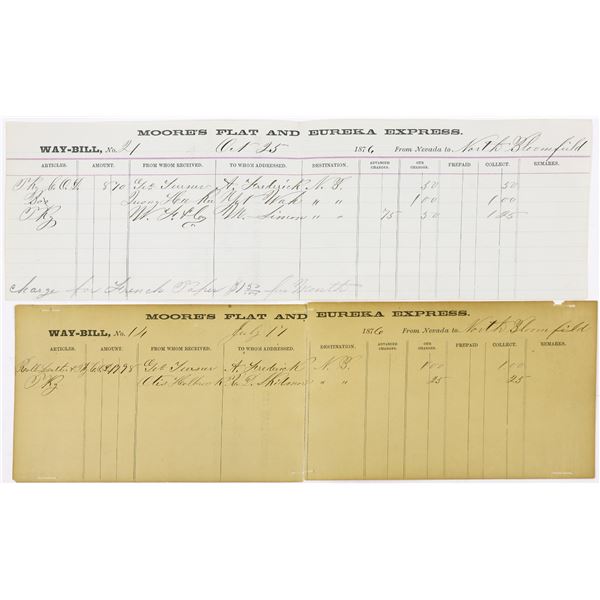 MOORE'S FLAT AND EUREKA EXPRESS.
WAY-BILL, No. 21 Oct 25 1876 From Nevada to North Bloomfield
ARTICLES. AMOUNT. FROM WHOM RECEIVED. TO WHOM ADDRESSED. DESTINATION. ADVANCED CHARGES. OUR CHARGES. PREPAID COLLECT. REMARKS.
Pkg C.O.D. 8 70 Geo Turner A. Fredrick N. B. 50 50
Box Quong Wah " " 1 00 1 00
Pkg W. F. & Co Simon " " 75 50 1 25
charge for French Paper $1.50 per Month
MOORE'S FLAT AND EUREKA EXPRESS.
WAY-BILL, No. 14 July 17 1876 From Nevada to North Bloomfield
ARTICLES. AMOUNT. FROM WHOM RECEIVED. TO WHOM ADDRESSED. DESTINATION. ADVANCED CHARGES. OUR CHARGES. PREPAID COLLECT. REMARKS.
Geo Turner A. Fredrick N. B. 1 00 1 00
Pkg Otis Holbrook " " 25 25